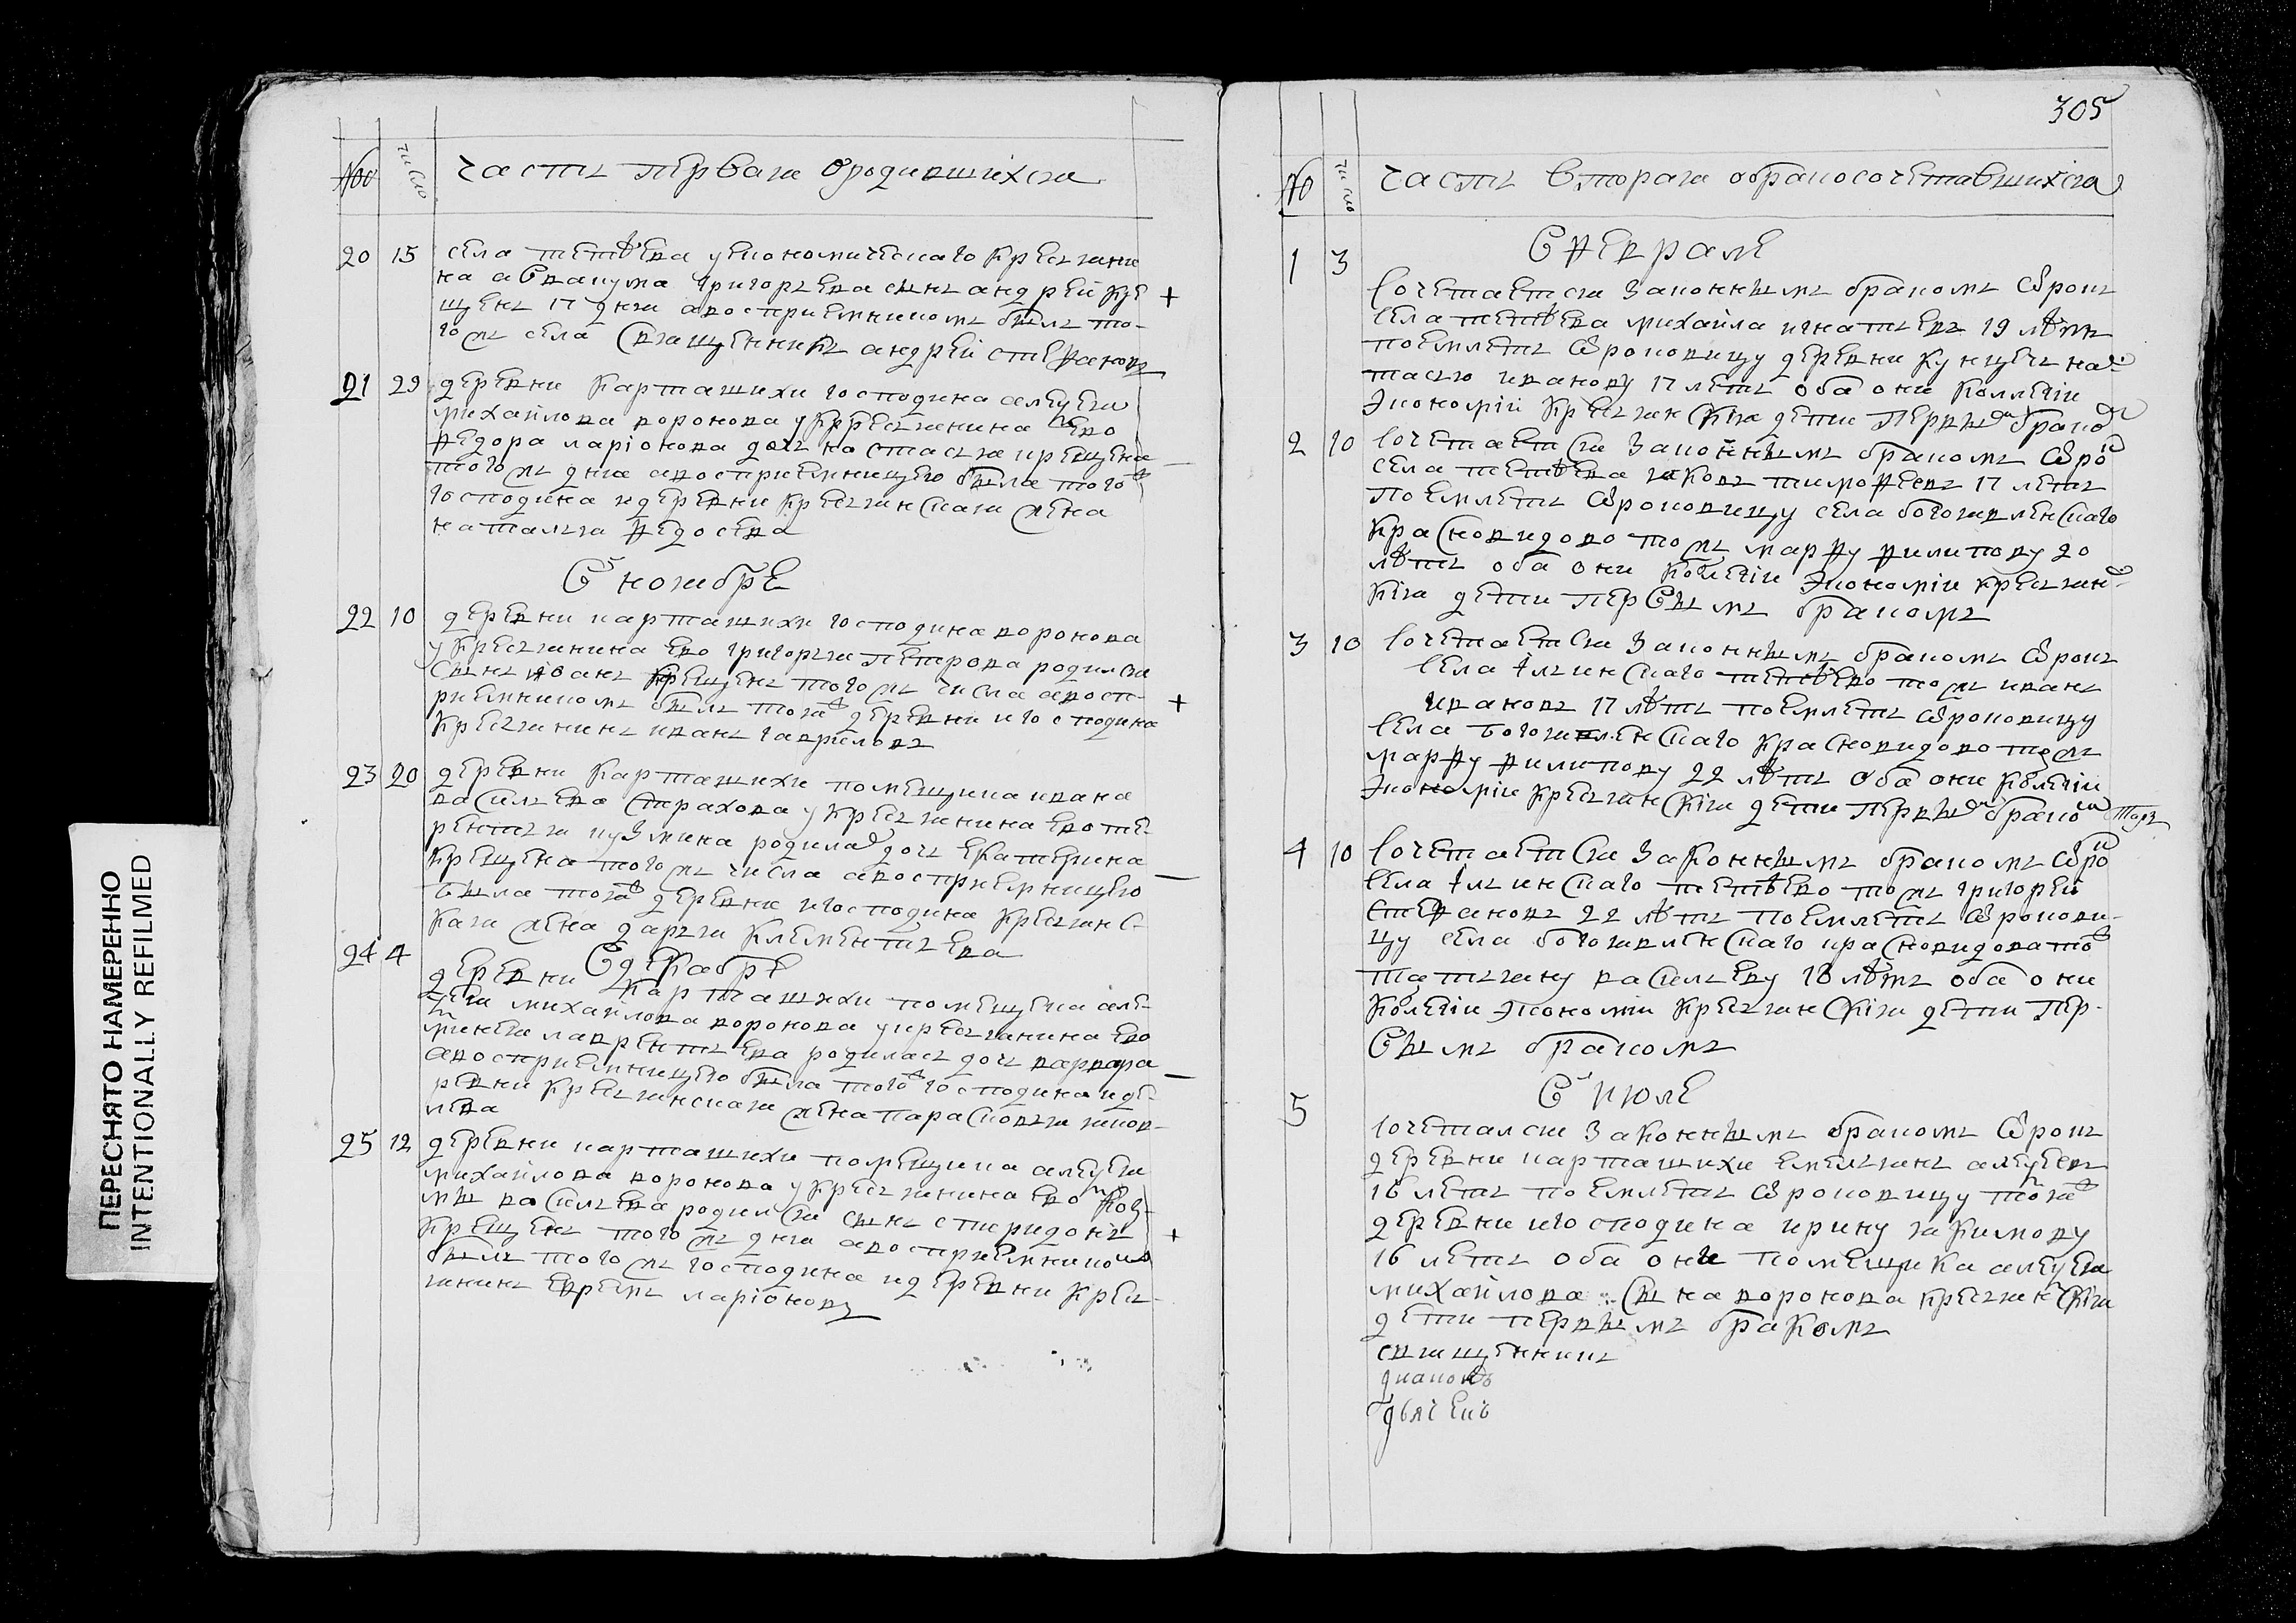 ПЕРЕСНЯТО НАМЕРЕННО
INTENTIONALLY REFILMED
No число часть первая ородившихся
20 15 села тетѣева уекономическаго крестьяни
на авваκума григорьева сынъ андрей кре +
щенъ 17 дня авосприемникомъ былъ то-
гожъ села священникъ андрей стефановъ
21 29 деревни карташихи господина алеѯея
михайлова воронова укрестьянина ево
федора ларіонова дочь настасья крещена
тогожъ дня авосприемницею была того ж
господина идеревни крестьянская жена
наталья федосева
в ноябре
22 10 деревни карташихи господина воронова
укрестьянина ево григорья петрова родился
сынъ иванъ крещенъ тогожъ числа авосп-
риемникомъ былъ тояж деревни игосподина +
крестьянинъ иванъ гавриловъ
23 20 деревни карташихи помещика ивана
васильева страхова укрестьянина ево те-
рентья кузмина родилас дочь екатерина
крещена тогожъ числа авосприемницею
была тояж деревни игосподина крестьянс-
кая жена дарья клементьева
в декабре
24 4 деревни карташихи помещика але-
ѯея михайлова воронова укрестьянина ево
лаврентьева родилась дочь варвара
авосприемницею была тогож господина иде-
ревни крестьянская жена парасковья яков-
лева
25 12 деревни карташихи помещика алеѯея
михайлова воронова укрестьянина ево коз-
мы васильева родился сынъ спиридонъ
крещенъ тогожъ дня авосприемникомъ +
былъ тогожъ господина идеревни крес-
янинъ ефремъ ларіоновъ
305
No число часть вторая обракосочетавшихся
в феврале
1 3 сочетается законнымъ бракомъ ѿрокъ
села тетѣева михайла игнатьевъ 19 лѣтъ
поемлетъ ѿроковицу деревни нас-
тасью иванову 17 летъ оба они коллегіи
экономіи крестьянскія дети первым браком
2 10 сочетается законнымъ бракомъ ѿрок
села тетѣева яковъ тимофеевъ 17 летъ
поемлетъ ѿроковицу села богоявленскаго
красновидово тожъ марфу филипову 20
лѣтъ оба они колегіи экономіи крестьянс-
кія дети первымъ бракомъ
3 10 сочетается законнымъ бракомъ ѿрокъ
села ильинскаго тетѣево тожъ иванъ
ивановъ 17 лѣтъ поемлетъ ѿроковицу
села богоявленскаго красновидово тожъ
марфу филипову 22 лѣтъ оба они колегіи
экономіи крестьянскія дети первым браком
4 10 сочетается законнымъ бракомъ ѿрок
села ильинскаго тетѣево тожъ григорей
стефановъ 22 лѣтъ поемлетъ ѿрокови-
цу села богоявленскаго красновидова тож
татьяну васильеву 18 лѣтъ оба они
колегіи экономіи крестьянскія дети пер-
вымъ бракомъ
в июле
5 сочетался законнымъ бракомъ ѿрокъ
деревни карташихи емельянъ алеѯеевъ
16 летъ поемлетъ ѿроковицу тояж
деревни игосподина ирину якимову
16 летъ оба они помещика алеѯея
михайлова сына воронова крестьянскія
дети первымъ бракомъ
священникъ
диаконъ
дьячекъ